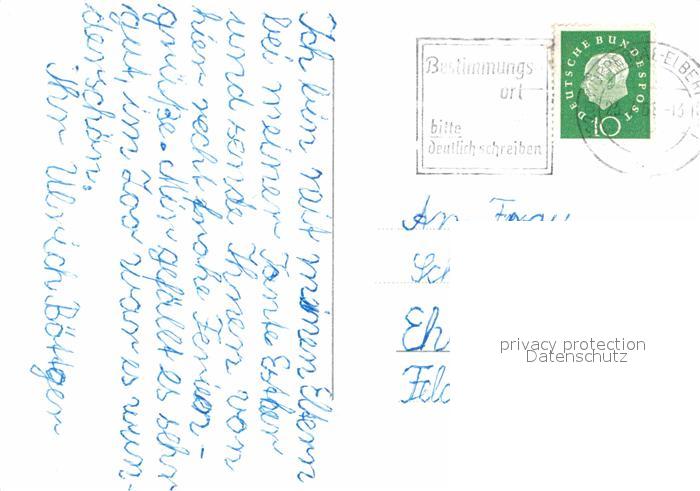 Ich bin mit meinen Eltern
bei meiner Tante Esther
und sende Ihnen von
hier recht frohe Ferien-
grüße. Mir gefällt es sehr
gut, im Zoo war es wun-
derschön.
Ihr Ulrich Böttger
Bestimmungs
ort
bitte
deutlich schreiben
DEUTSCHE BUNDESPOST
10
An Frau
Sch
Eh
Feld
privacy protection
Datenschutz